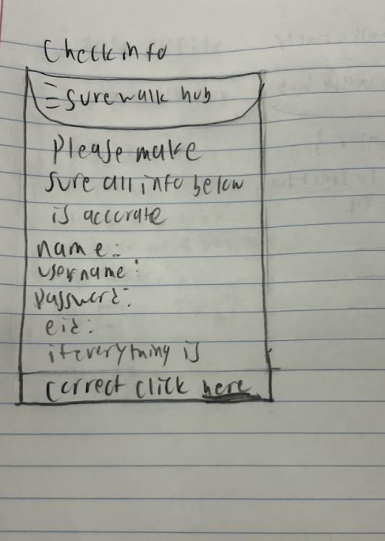 Check info
surewalk hub
Please make
sure all info below
is accurate
name:
username:
password:
eid:
if everything is
correct click here